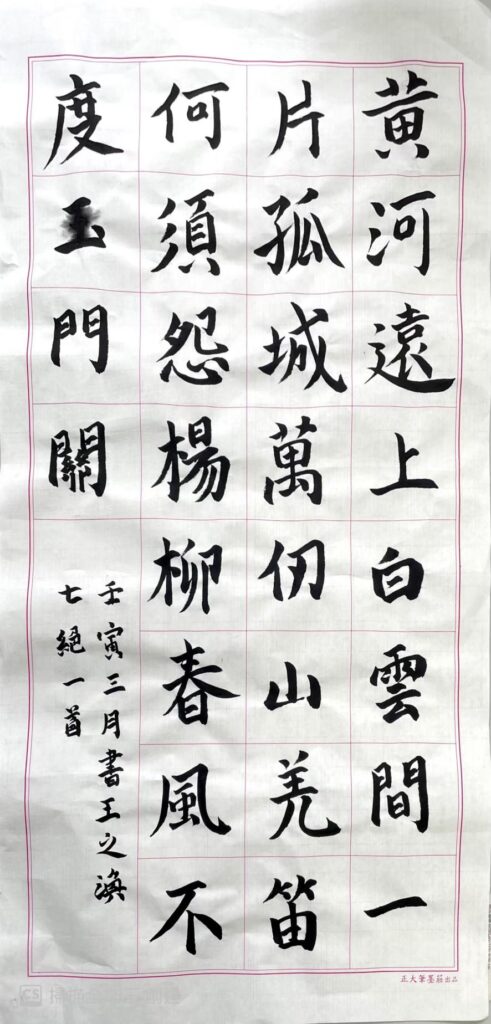 黃河遠上白雲間一
片孤城萬仞山羌笛
何須怨楊柳春風不
度玉門關
壬寅三月書王之渙
七絕一首
正大筆墨莊出品
CS